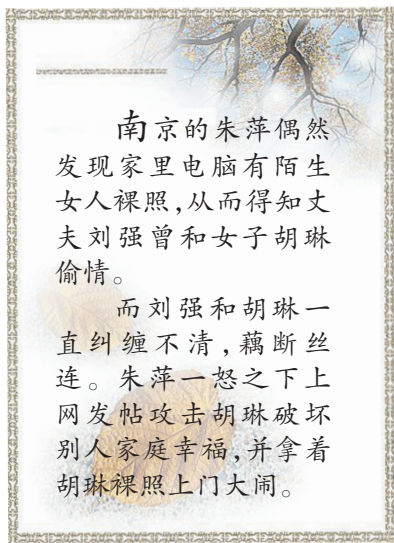 南京的朱萍偶然
发现家里电脑有陌生
女人裸照，从而得知丈
夫刘强曾和女子胡琳
偷情。
而刘强和胡琳一
直纠缠不清，藕断丝
连。朱萍一怒之下上
网发帖攻击胡琳破坏
别人家庭幸福，并拿着
胡琳裸照上门大闹。